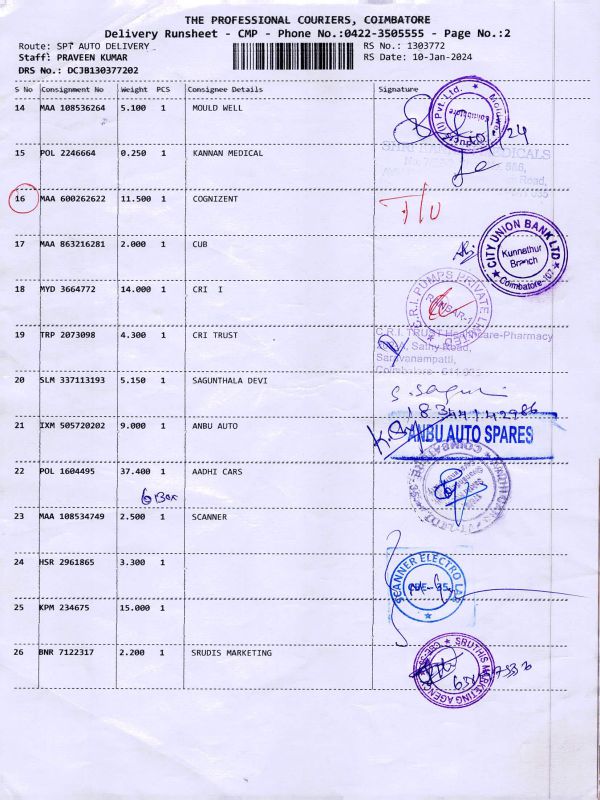 THE PROFESSIONAL COURIERS, COIMBATORE
Delivery Runsheet - CMP - Phone No.:0422-3505555 - Page No.:2
Route: SPT AUTO DELIVERY RS No.: 1303772
Staff: PRAVEEN KUMAR RS Date: 10-Jan-2024
DRS No.: DCJB130377202
S No Consignment No Weight PCS Consignee Details Signature
14 MAA 108536264 5.100 1 MOULD WELL
15 POL 2246664 0.250 1 KANNAN MEDICAL
16 MAA 600262622 11.500 1 COGNIZENT
17 MAA 863216281 2.000 1 CUB
CITY UNION BANK LTD
Kunnathur
Branch
Coimbatore-107
18 MYD 3664772 14.000 1 CRI I
C.R.I. PUMPS PRIVATE LIMITED
19 TRP 2073098 4.300 1 CRI TRUST
C.R.I. TRUST Healthcare-Pharmacy
Sathy Road,
Saravanampatti,
20 SLM 337113193 5.150 1 SAGUNTHALA DEVI
21 IXM 505720202 9.000 1 ANBU AUTO
ANBU AUTO SPARES
22 POL 1604495 37.400 1 AADHI CARS
6 Box
23 MAA 108534749 2.500 1 SCANNER
24 HSR 2961865 3.300 1
SCANNER ELECTRO LAB
CBE - 35
25 KPM 234675 15.000 1
26 BNR 7122317 2.200 1 SRUDIS MARKETING
SRUTHIS MARKETING AGENCY